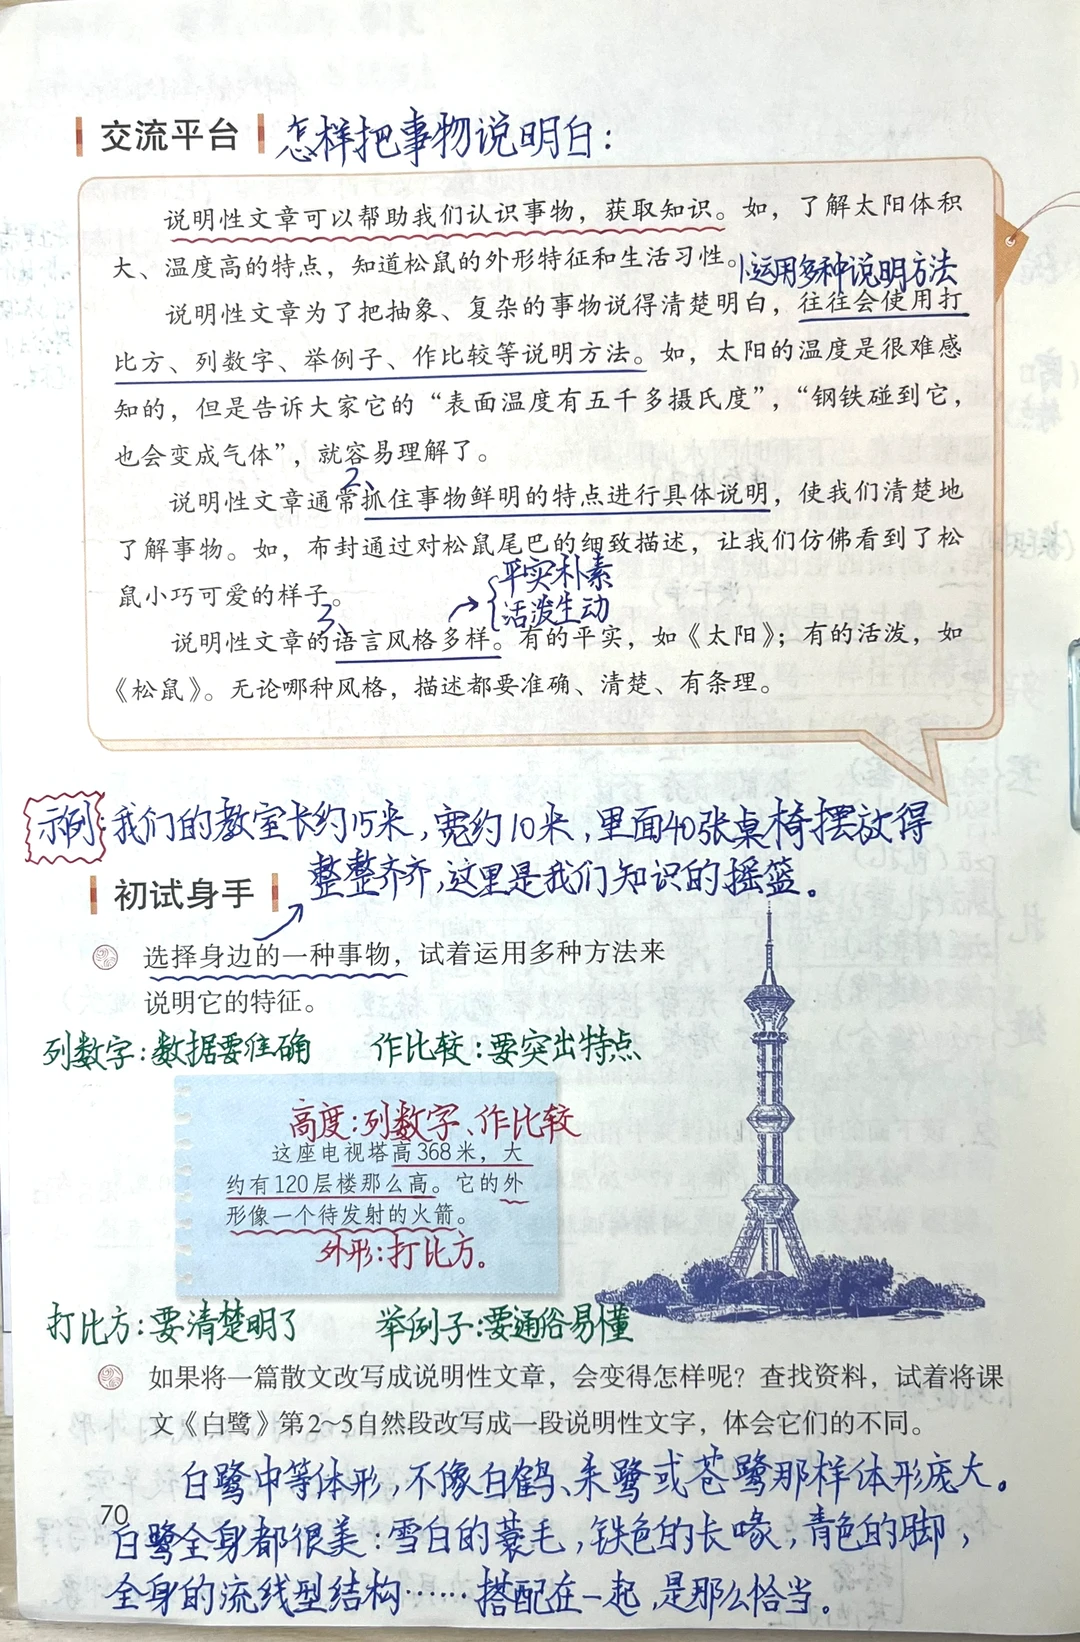 交流平台 怎样把事物说明白：
说明性文章可以帮助我们认识事物，获取知识。如，了解太阳体积
大、温度高的特点，知道松鼠的外形特征和生活习性。
1.运用多种说明方法
说明性文章为了把抽象、复杂的事物说得清楚明白，往往会使用打
比方、列数字、举例子、作比较等说明方法。如，太阳的温度是很难感
知的，但是告诉大家它的“表面温度有五千多摄氏度”，“钢铁碰到它，
也会变成气体”，就容易理解了。
2、
说明性文章通常抓住事物鲜明的特点进行具体说明，使我们清楚地
了解事物。如，布封通过对松鼠尾巴的细致描述，让我们仿佛看到了松
鼠小巧可爱的样子。
平实朴素
活泼生动
3、
说明性文章的语言风格多样。有的平实，如《太阳》；有的活泼，如
《松鼠》。无论哪种风格，描述都要准确、清楚、有条理。
示例 我们的教室长约15米，宽约10米，里面40张桌椅摆放得
整整齐齐，这里是我们知识的摇篮。
初试身手
选择身边的一种事物，试着运用多种方法来
说明它的特征。
列数字：数据要准确 作比较：要突出特点
高度：列数字、作比较
这座电视塔高368米，大
约有120层楼那么高。它的外
形像一个待发射的火箭。
外形：打比方。
打比方：要清楚明了 举例子：要通俗易懂
如果将一篇散文改写成说明性文章，会变得怎样呢？查找资料，试着将课
文《白鹭》第2~5自然段改写成一段说明性文字，体会它们的不同。
白鹭中等体形，不像白鹤、朱鹭或苍鹭那样体形庞大。
70
白鹭全身都很美：雪白的蓑毛，铁色的长喙，青色的脚，
全身的流线型结构……搭配在一起，是那么恰当。